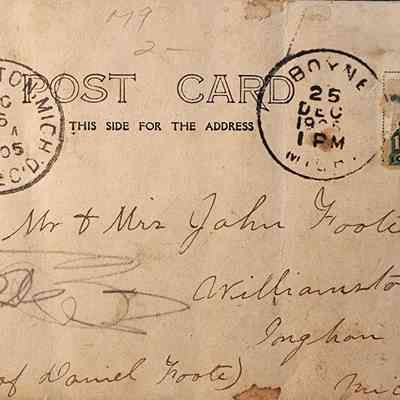 M9
2-
POST CARD
THIS SIDE FOR THE ADDRESS
TON, MICH.
DEC
6
A
05
REC'D.
BOYNE
25
DEC
1905
1 PM
MICH.
Mr & Mrs John Foote
Williamsto
Ingham
of Daniel Foote)
Mic